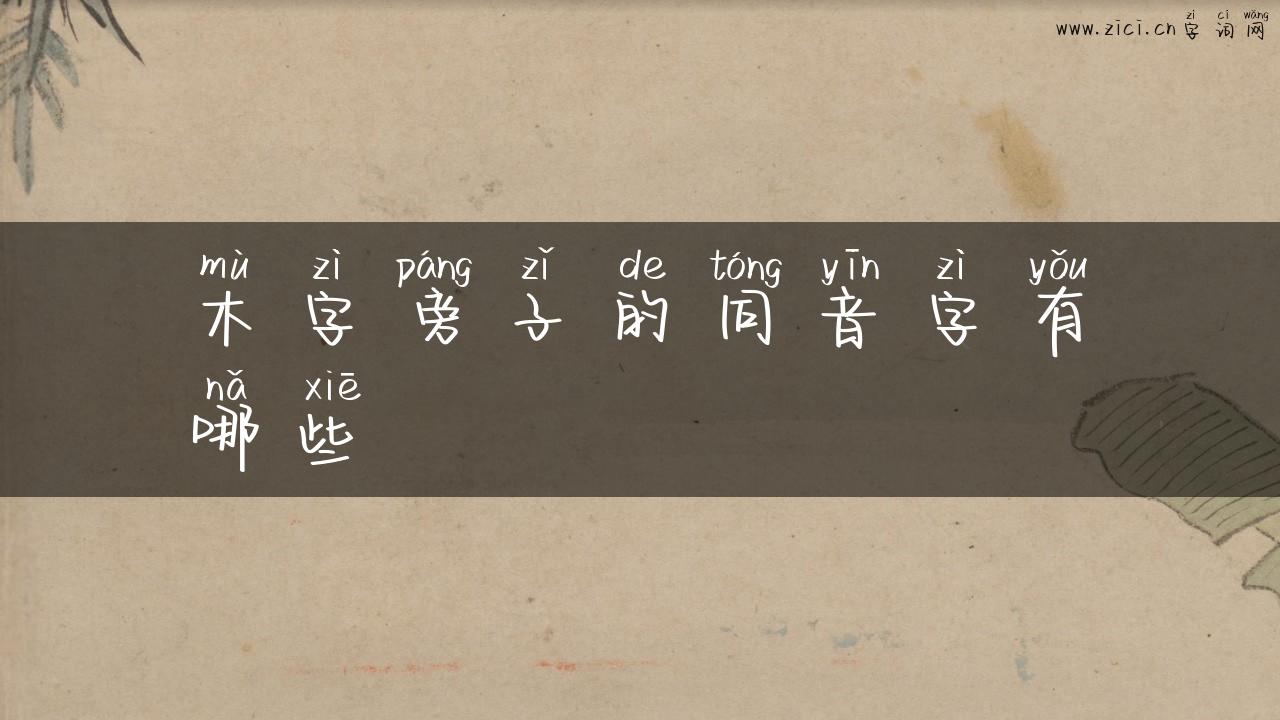 zì cí wǎng
www.zici.cn 字词网
mù zì páng zǐ de tóng yīn zì yǒu
木字旁子的同音字有
nǎ xiē
哪些